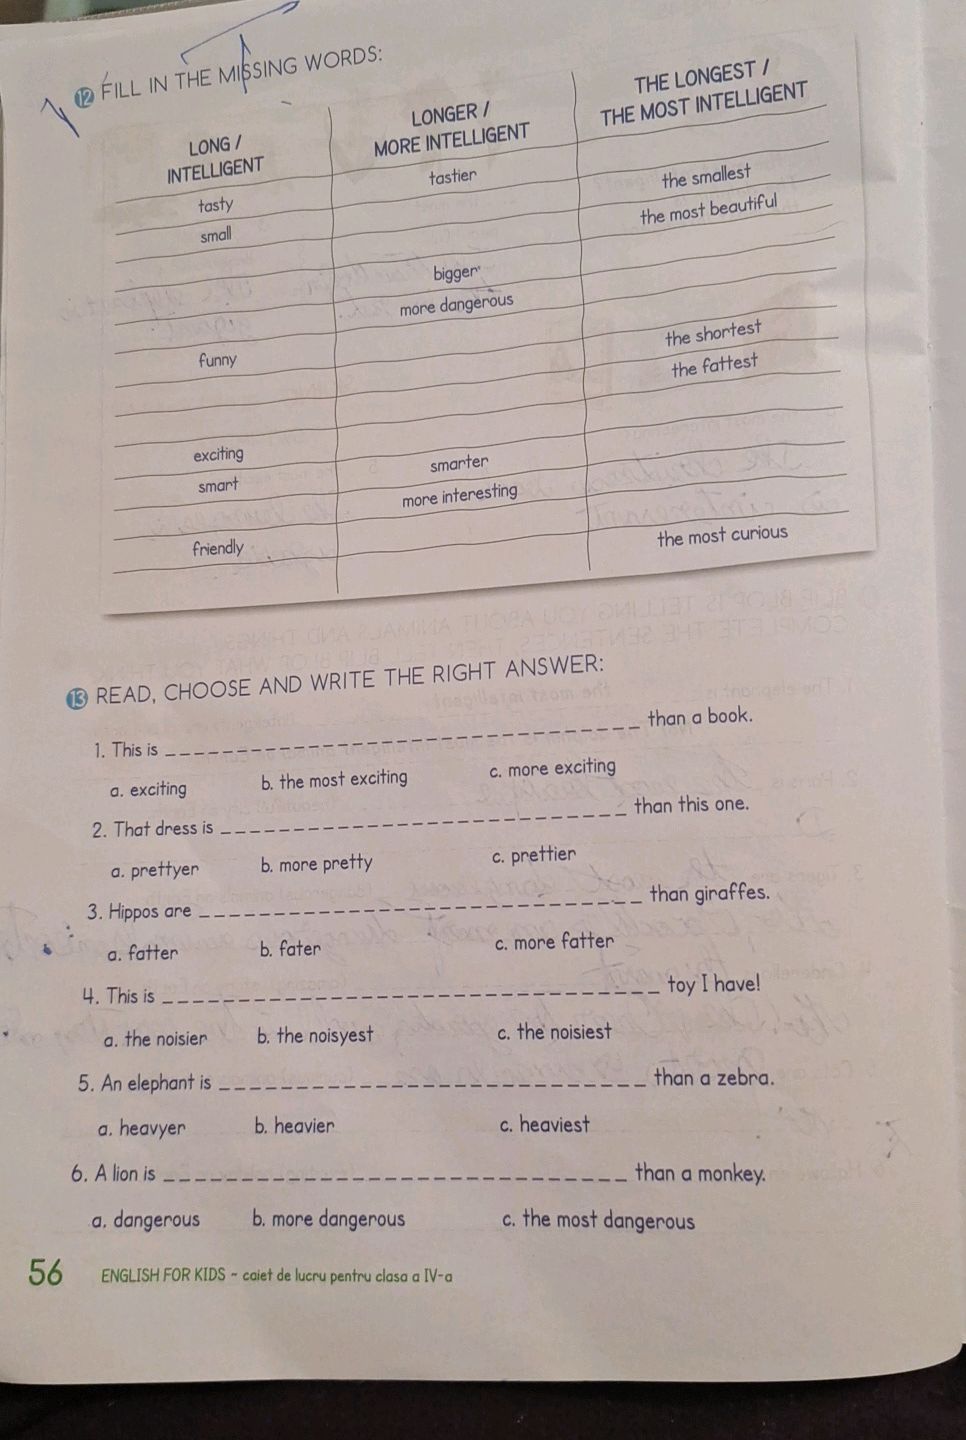 12 FILL IN THE MISSING WORDS:
LONG / INTELLIGENT
LONGER / MORE INTELLIGENT
THE LONGEST / THE MOST INTELLIGENT
tasty tastier
small the smallest
the most beautiful
bigger
more dangerous
funny
the shortest
the fattest
exciting
smart smarter
more interesting
friendly
the most curious
13 READ, CHOOSE AND WRITE THE RIGHT ANSWER:
1. This is than a book.
a. exciting b. the most exciting c. more exciting
2. That dress is than this one.
a. prettyer b. more pretty c. prettier
3. Hippos are than giraffes.
a. fatter b. fater c. more fatter
4. This is toy I have!
a. the noisier b. the noisyest c. the noisiest
5. An elephant is than a zebra.
a. heavyer b. heavier c. heaviest
6. A lion is than a monkey.
a. dangerous b. more dangerous c. the most dangerous
56 ENGLISH FOR KIDS - caiet de lucru pentru clasa a IV-a